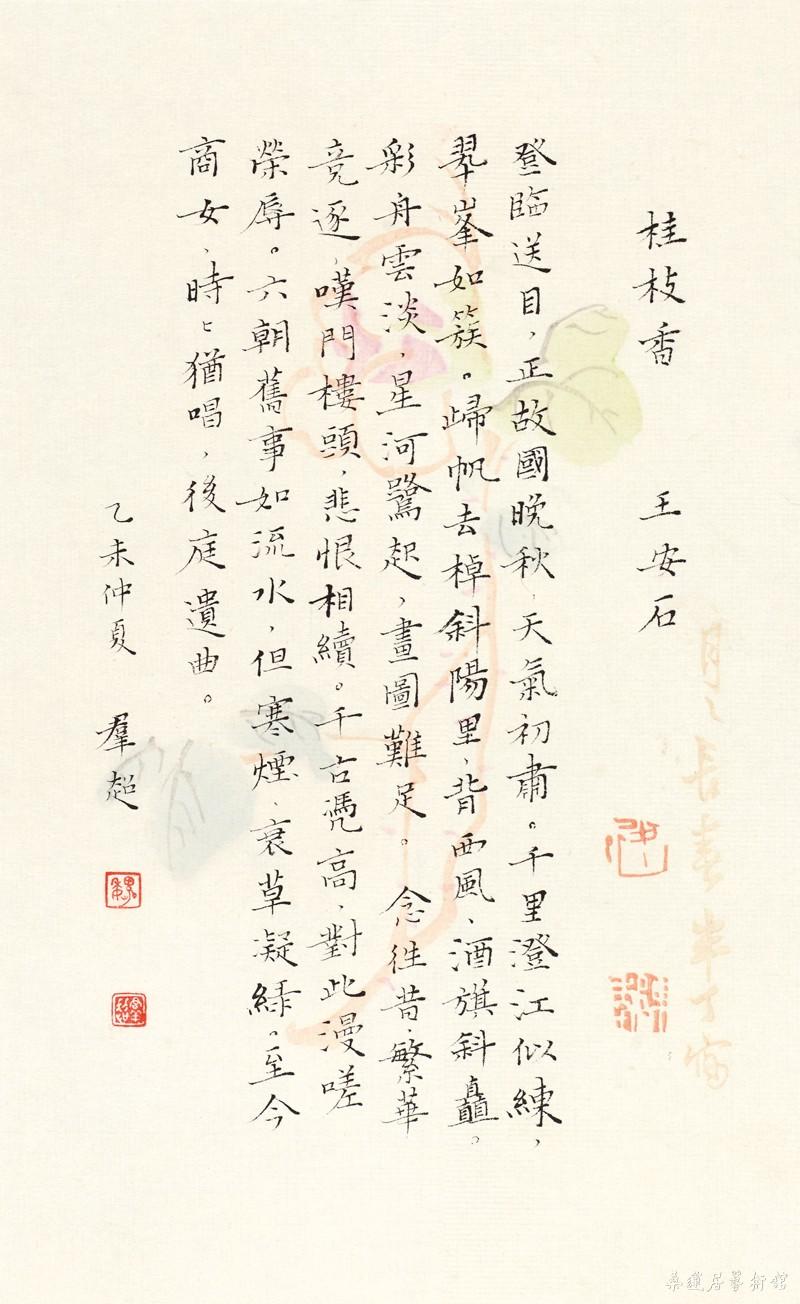 桂枝香 王安石
登臨送目,正故國晚秋,天氣初肅。千里澄江似練,
翠峯如簇。歸帆去棹斜陽里,背西風,酒旗斜矗。
彩舟雲淡,星河鷺起,畫圖難足。念徃昔,繁華
竞逐,嘆門樓頭,悲恨相續。千古凴高,對此漫嗟
榮辱。六朝舊事如流水,但寒煙、衰草凝綠。至今
商女,時〻猶唱,後庭遺曲。
乙未仲夏 羣超
魏
羣超
月〻長春 半丁寫
居藝術館